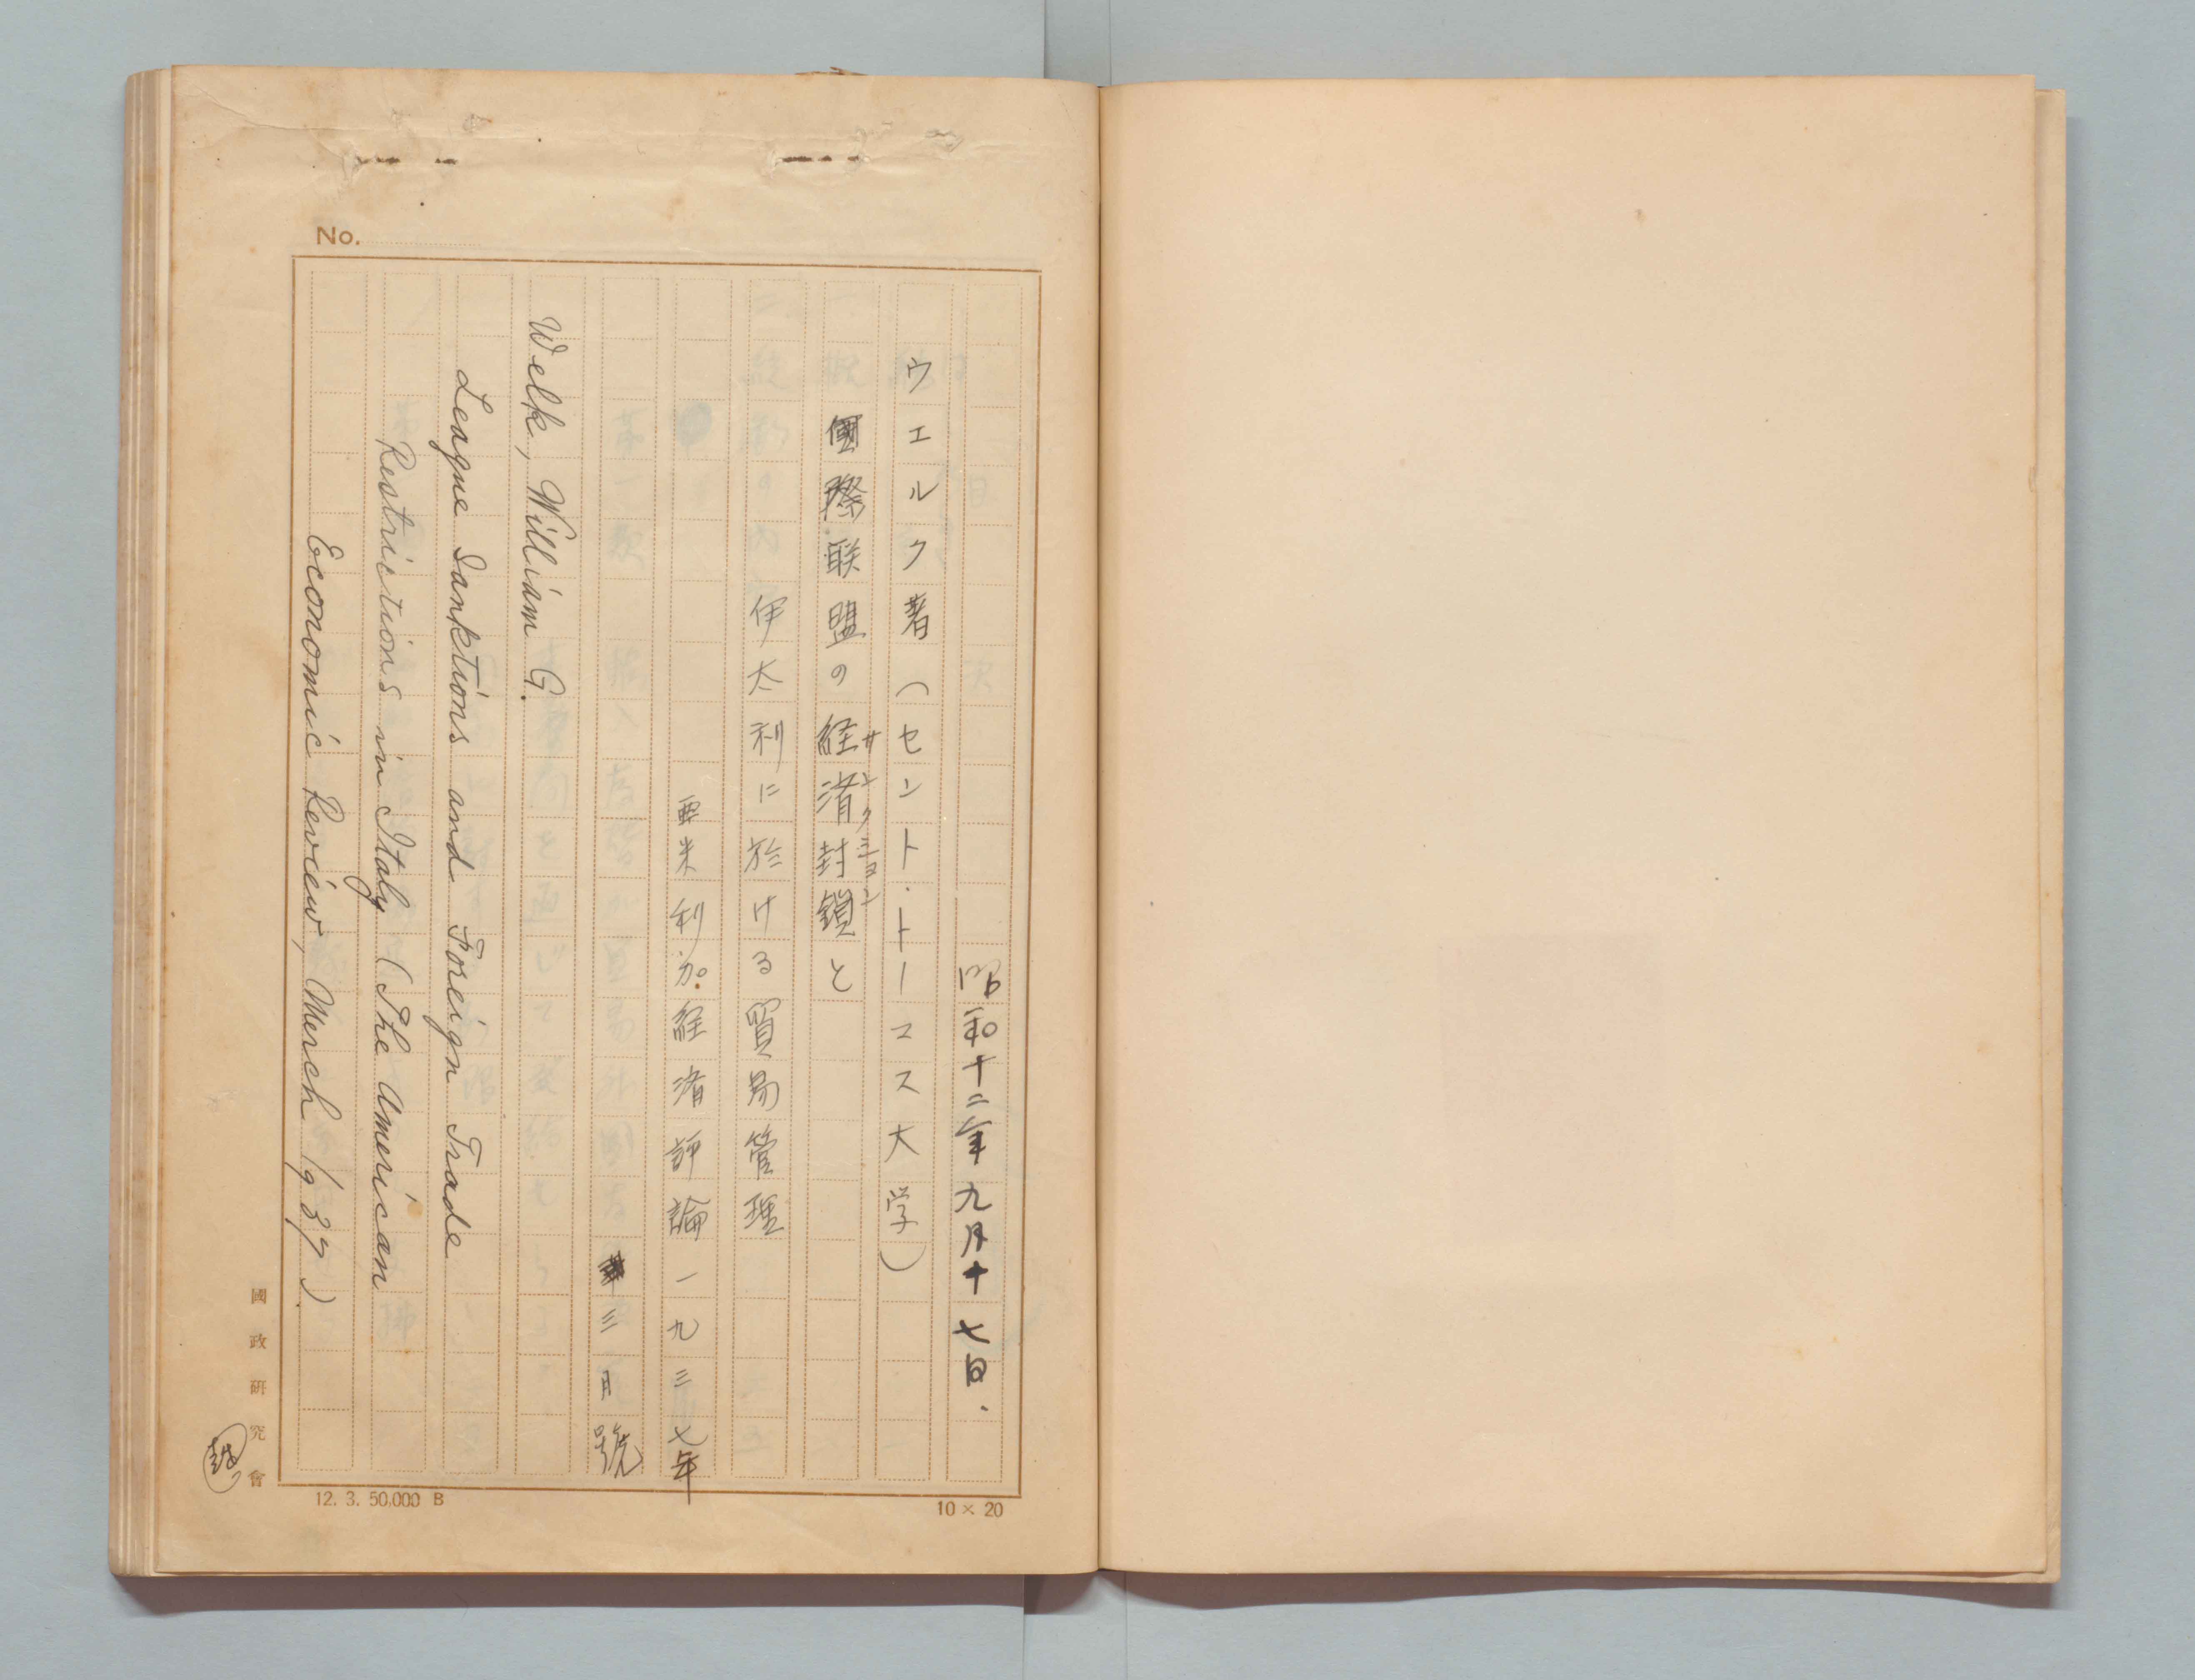 No.
昭和十二年九月十七日.
ウエルク著(セント・トーマス大学)
國際联盟の経済封鎖と
サンクション
伊太利に於ける貿易管理
亜米利加経済評論一九三七年
三月號
Welk, William G.
League Sanktions and Foreign Trade
Restrictions in Italy (The American
Economic Review, March 1937).
國政研究會
12. 3. 50,000 B
10×20